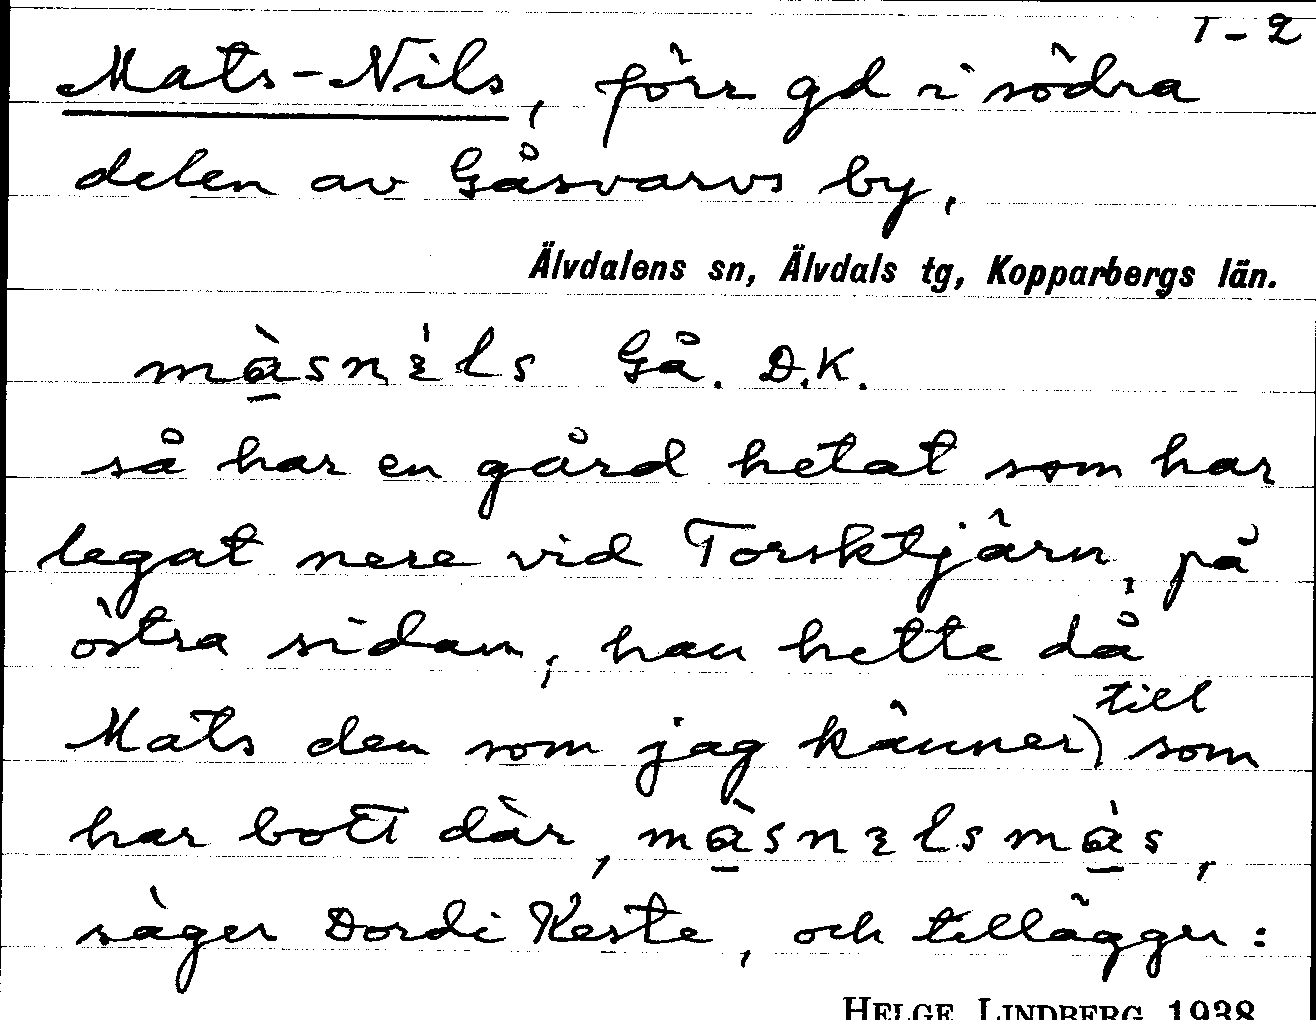 1-2
Mats-Nils, förr gd i södra
delen av Gåsvarvs by,
Älvdalens sn, Älvdals tg, Kopparbergs län.
Gå. D.K.
så har en gård hetat som har
legat nere vid Torsktjärn, på
östra sidan, han hette då
till
Mats den som jag känner) som
har bott där,
säger Dordi Keste, och tillägger:
HELGE LINDBERG 1938